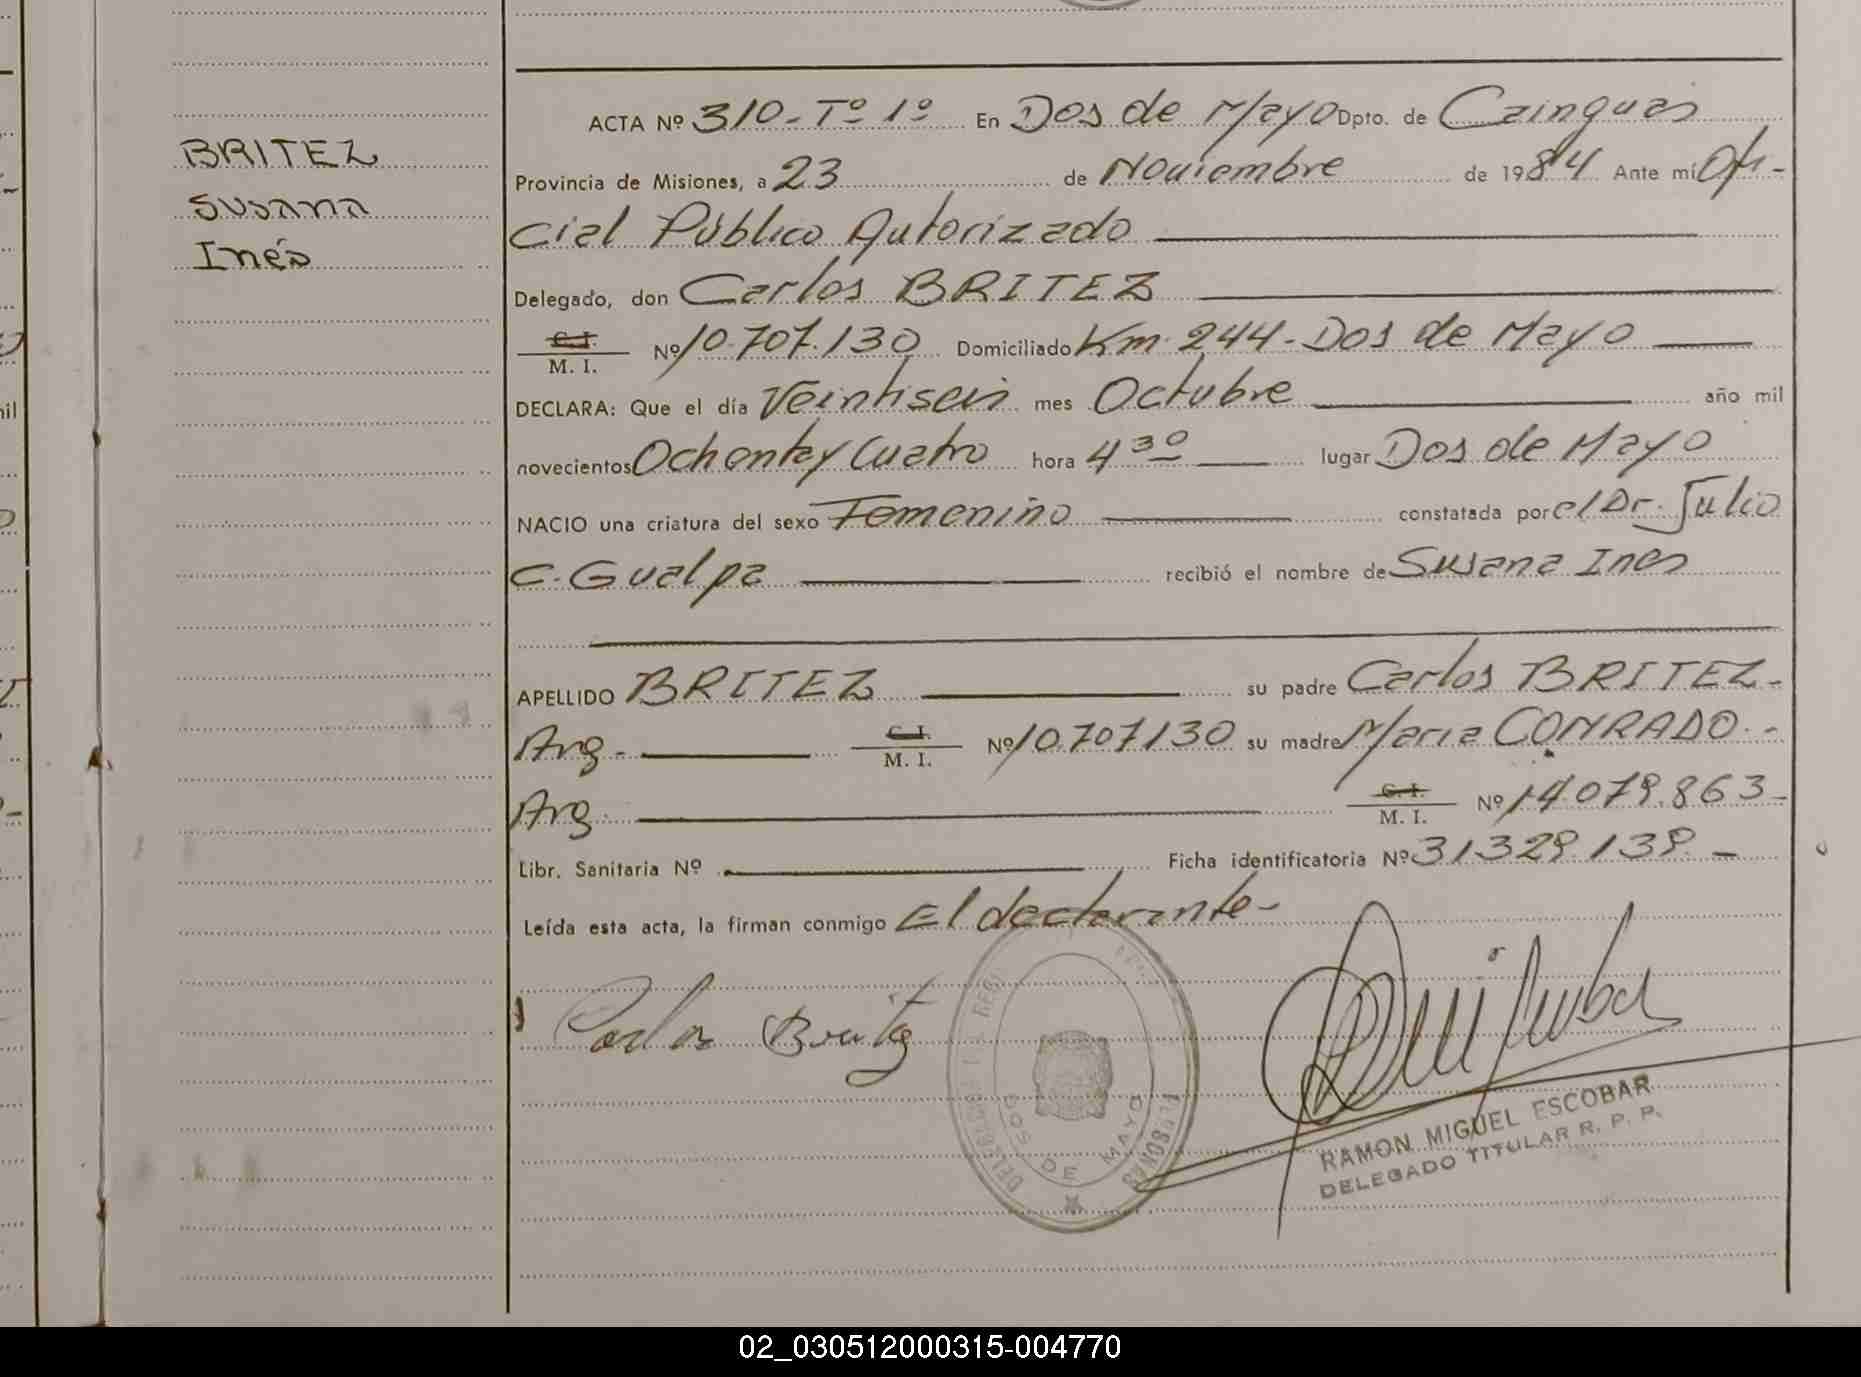 BRITEZ
Susana
Inés
ACTA Nº 310-Tº 1º En Dos de Mayo Dpto. de Cainguas
Provincia de Misiones, a 23 de Noviembre de 1984 Ante mí Ofi-
cial Público Autorizado
Delegado, don Carlos BRITEZ
C.I.
M. I. Nº 10.707.130 Domiciliado Km. 244-Dos de Mayo
DECLARA: Que el día Veintiseis mes Octubre año mil
novecientos Ochenta y Cuatro hora 4 30 lugar Dos de Mayo
NACIO una criatura del sexo Femenino constatada por el Dr. Julio
C. Gualpa recibió el nombre de Susana Ines
APELLIDO BRITEZ su padre Carlos BRITEZ-
Arg- C.I. M. I. Nº 10.707.130 su madre Maria CONRADO.-
Arg. C.I. M. I. Nº 14.079.863-
Libr. Sanitaria Nº Ficha identificatoria Nº 31.329.139.-
Leída esta acta, la firman conmigo El declarante-
Carlos Britez
DOS DE MAYO
MISIONES
RAMON MIGUEL ESCOBAR
DELEGADO TITULAR R. P. P.
02_030512000315-004770